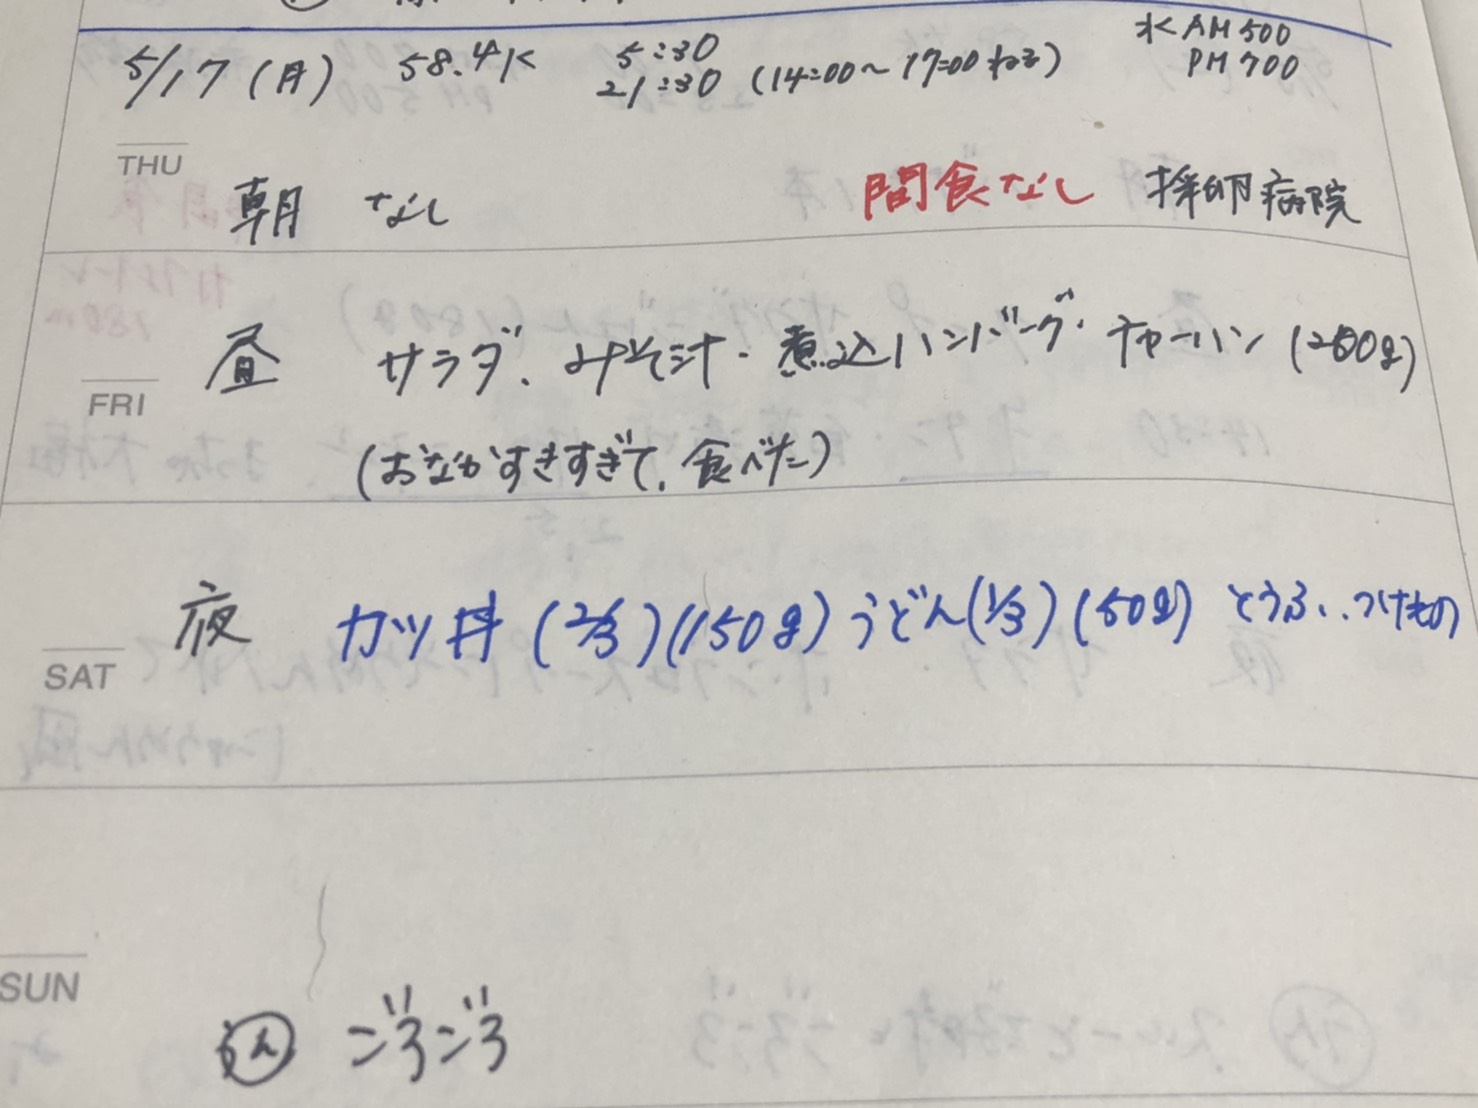 5/17(月) 58.4K 5:30 水 AM 500
21:30 (14:00~17:00 ねる) PM 700
THU
朝 なし 間食なし 病院
昼 サラダ、みそ汁・煮込ハンバーグ・チャーハン (200g)
FRI
(おなかすきすぎて、食べた)
夜 カツ丼(2/3)(150g)うどん(1/3)(50g) とうふ、つけもの
SAT
SUN
ゴロゴロ